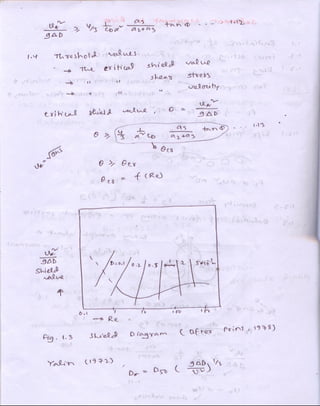 u*²/gΔD ≥ 4/3 1/α²CD a3/a2+a3 tan φ . . . 1.12
1.4 Threshold values
→ The critical shield value
→ " " shear stress
→ " " velocity
critical shield value, θ = u*²/gΔD
θ ≥ 4/3 1/α²CD a3/a2+a3 tan φ . . 1.13
θcr
u* = √
θ ≥ θcr
θcr = f (Re)
u*²/gΔD
Shield value
D=0.1 0.2 0.5 1mm 2
0.1 1
→ Re
Fig. 1.3 Shield Diagram (after Prins, 1978)
Yalin (1972)
D* = D50 (gΔ/υ²)^1/3